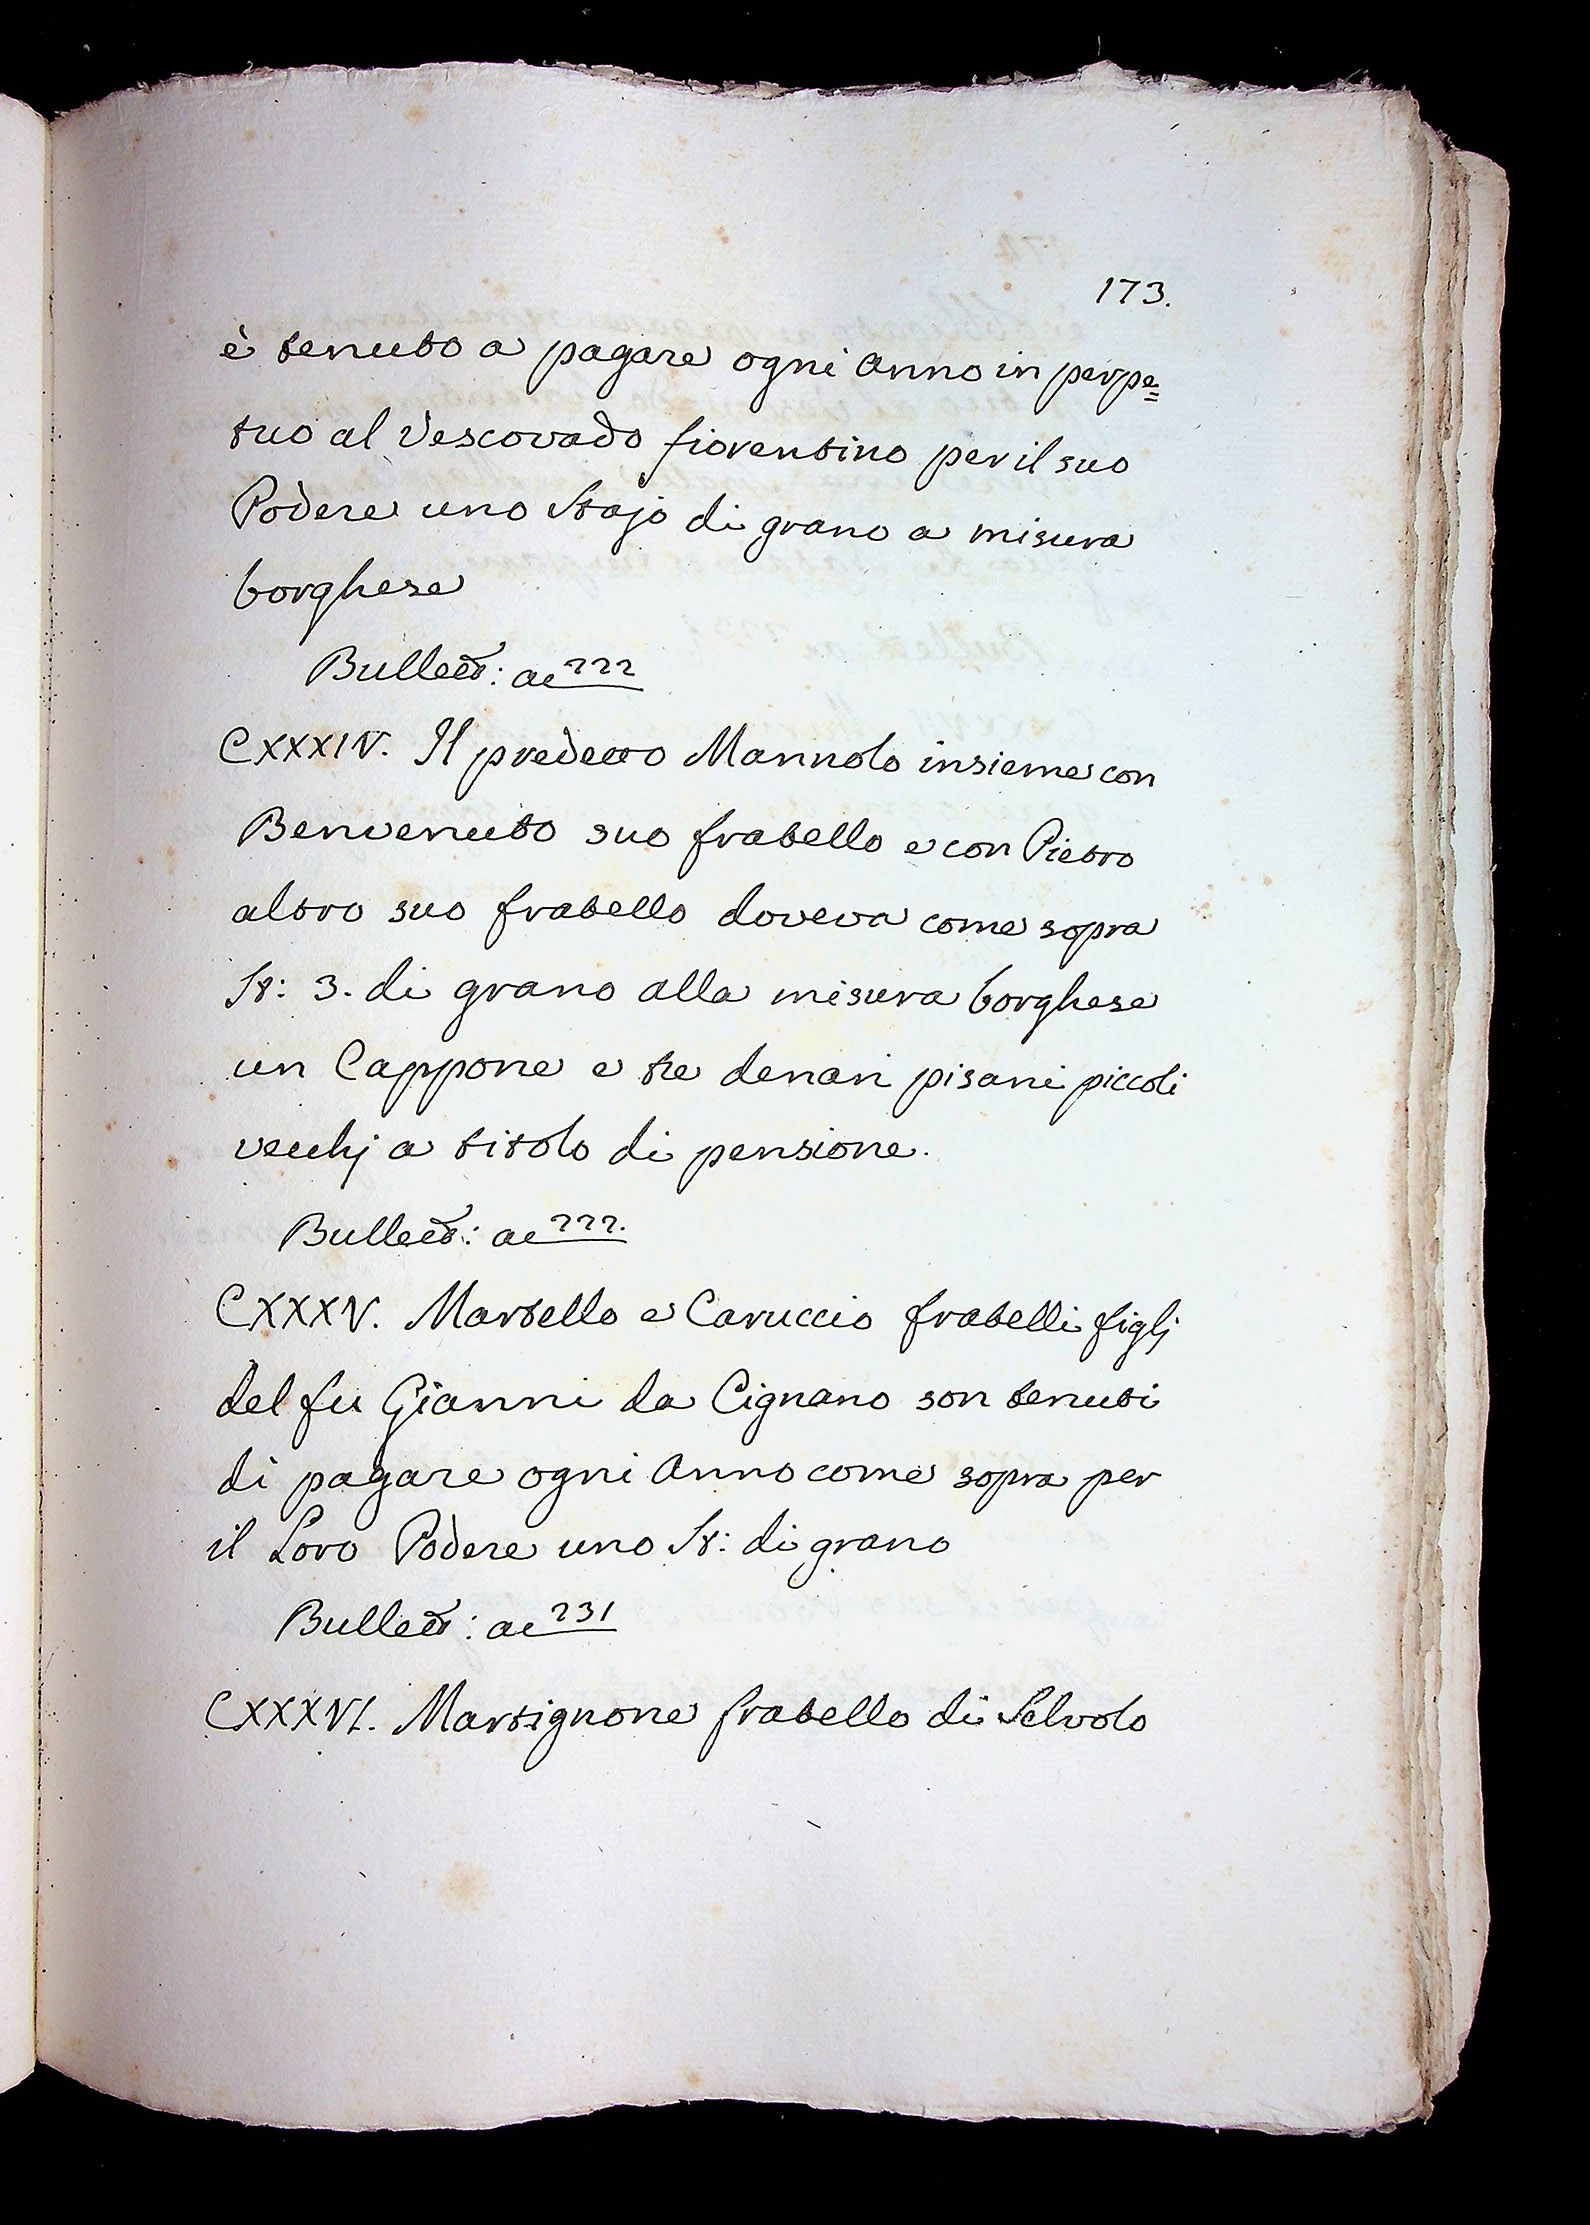 173.
è tenuto a pagare ogni anno in perpe=
tuo al Vescovado fiorentino per il suo
Podere uno Stajo di grano a misura
borghese
Bullett: ac 222
CXXXIV. Il predetto Mannolo insieme con
Benvenuto suo fratello e con Pietro
altro suo fratello doveva come sopra
St: 3. di grano alla misura borghese
un Cappone e tre denari pisani piccoli
vecchj a titolo di pensione.
Bullett: ac 222.
CXXXV. Martello e Caruccio fratelli figlj
del fu Gianni da Cignano son tenuti
di pagare ogni Anno come sopra per
il Loro Podere uno St: di grano
Bullett: ac 231
CXXXVI. Martignone fratello di Selvolo